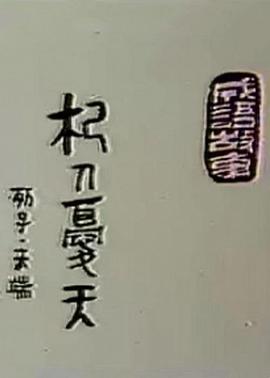 成語故事
杞人憂天
列子·天瑞